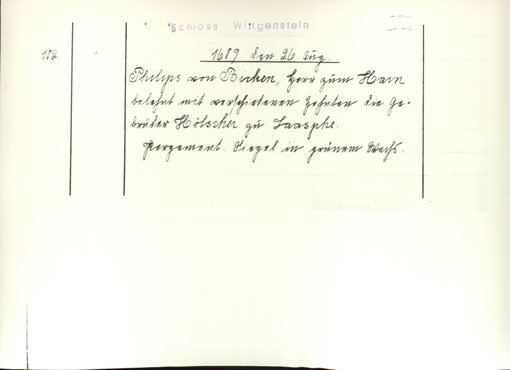 Schloss Wingenstein
182. 1689 den 26. Aug.
Philips von Bicken, Herr zum Hain
belehnt mit verschiedenen Zehnten die Ge-
brüder Hölscher zu Laasphe.
Pergament. Siegel in grünem Wachs.